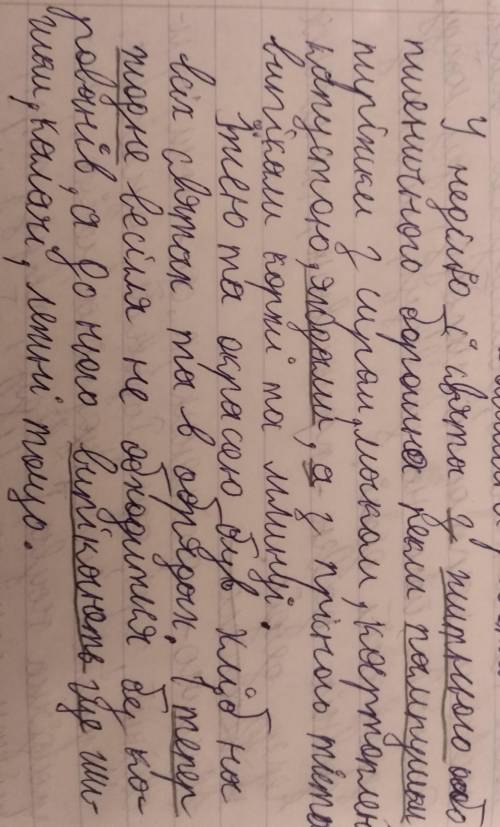 У неділю і свята з питльного або
пшеничного борошна пекли пампушки
пиріжки з сиром, маком, картоплею
капустою, ягодами, а з прісного тіста
випікали коржі та млинці.
Їжею та окрасою був хліб на
всіх святах та в обрядах. І тепер
жодне весілля не обходиться без ко-
роваїв, а до нього випікають ще ши-
шки, калачі, лежні тощо.